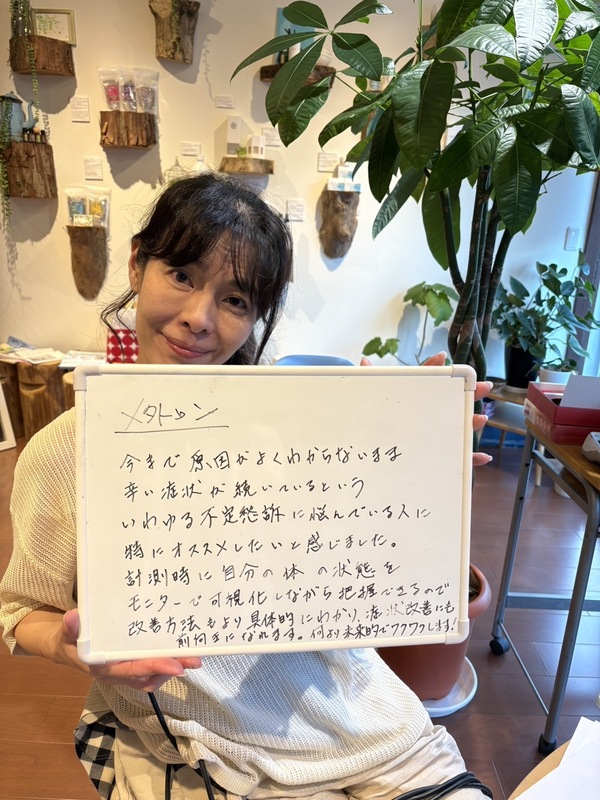 メタトロン
今まで原因がよくわからないまま
辛い症状が続いているという
いわゆる不定愁訴に悩んでいる人に
特にオススメしたいと感じました。
計測時に自分の体の状態を
モニターで可視化しながら把握できるので
改善方法もより具体的にわかり、症状改善にも
前向きになれます。何より未来的でワクワクします!